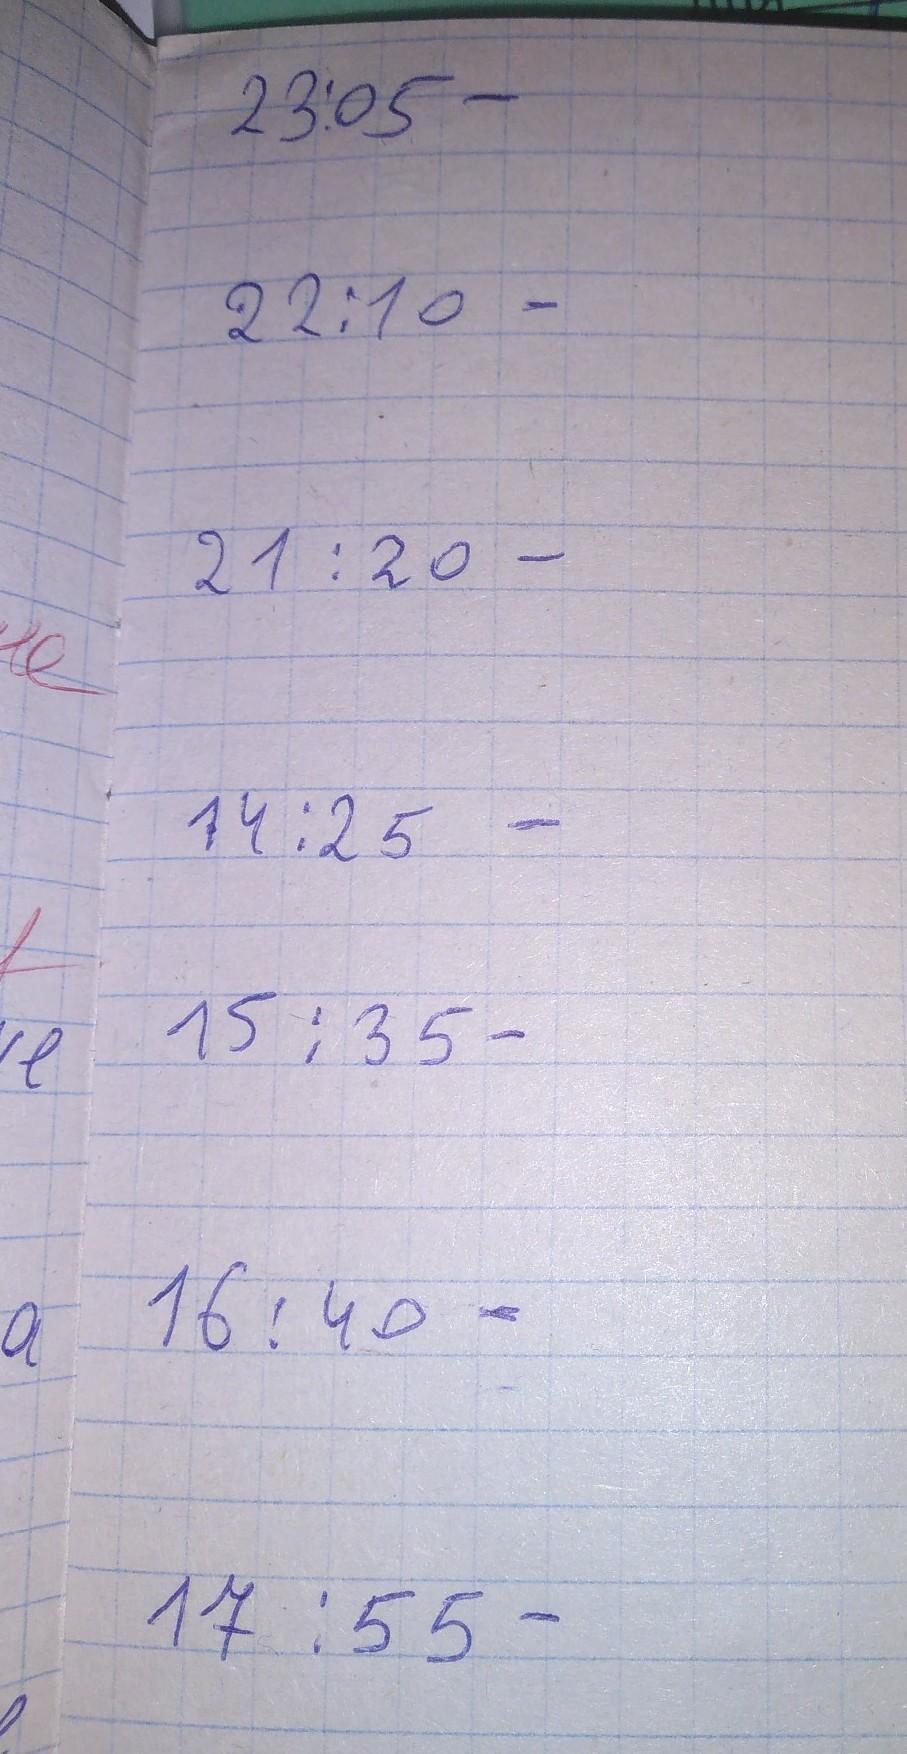 23:05 -
22:10 -
21:20 -
14:25 -
15:35 -
16:40 -
17:55 -